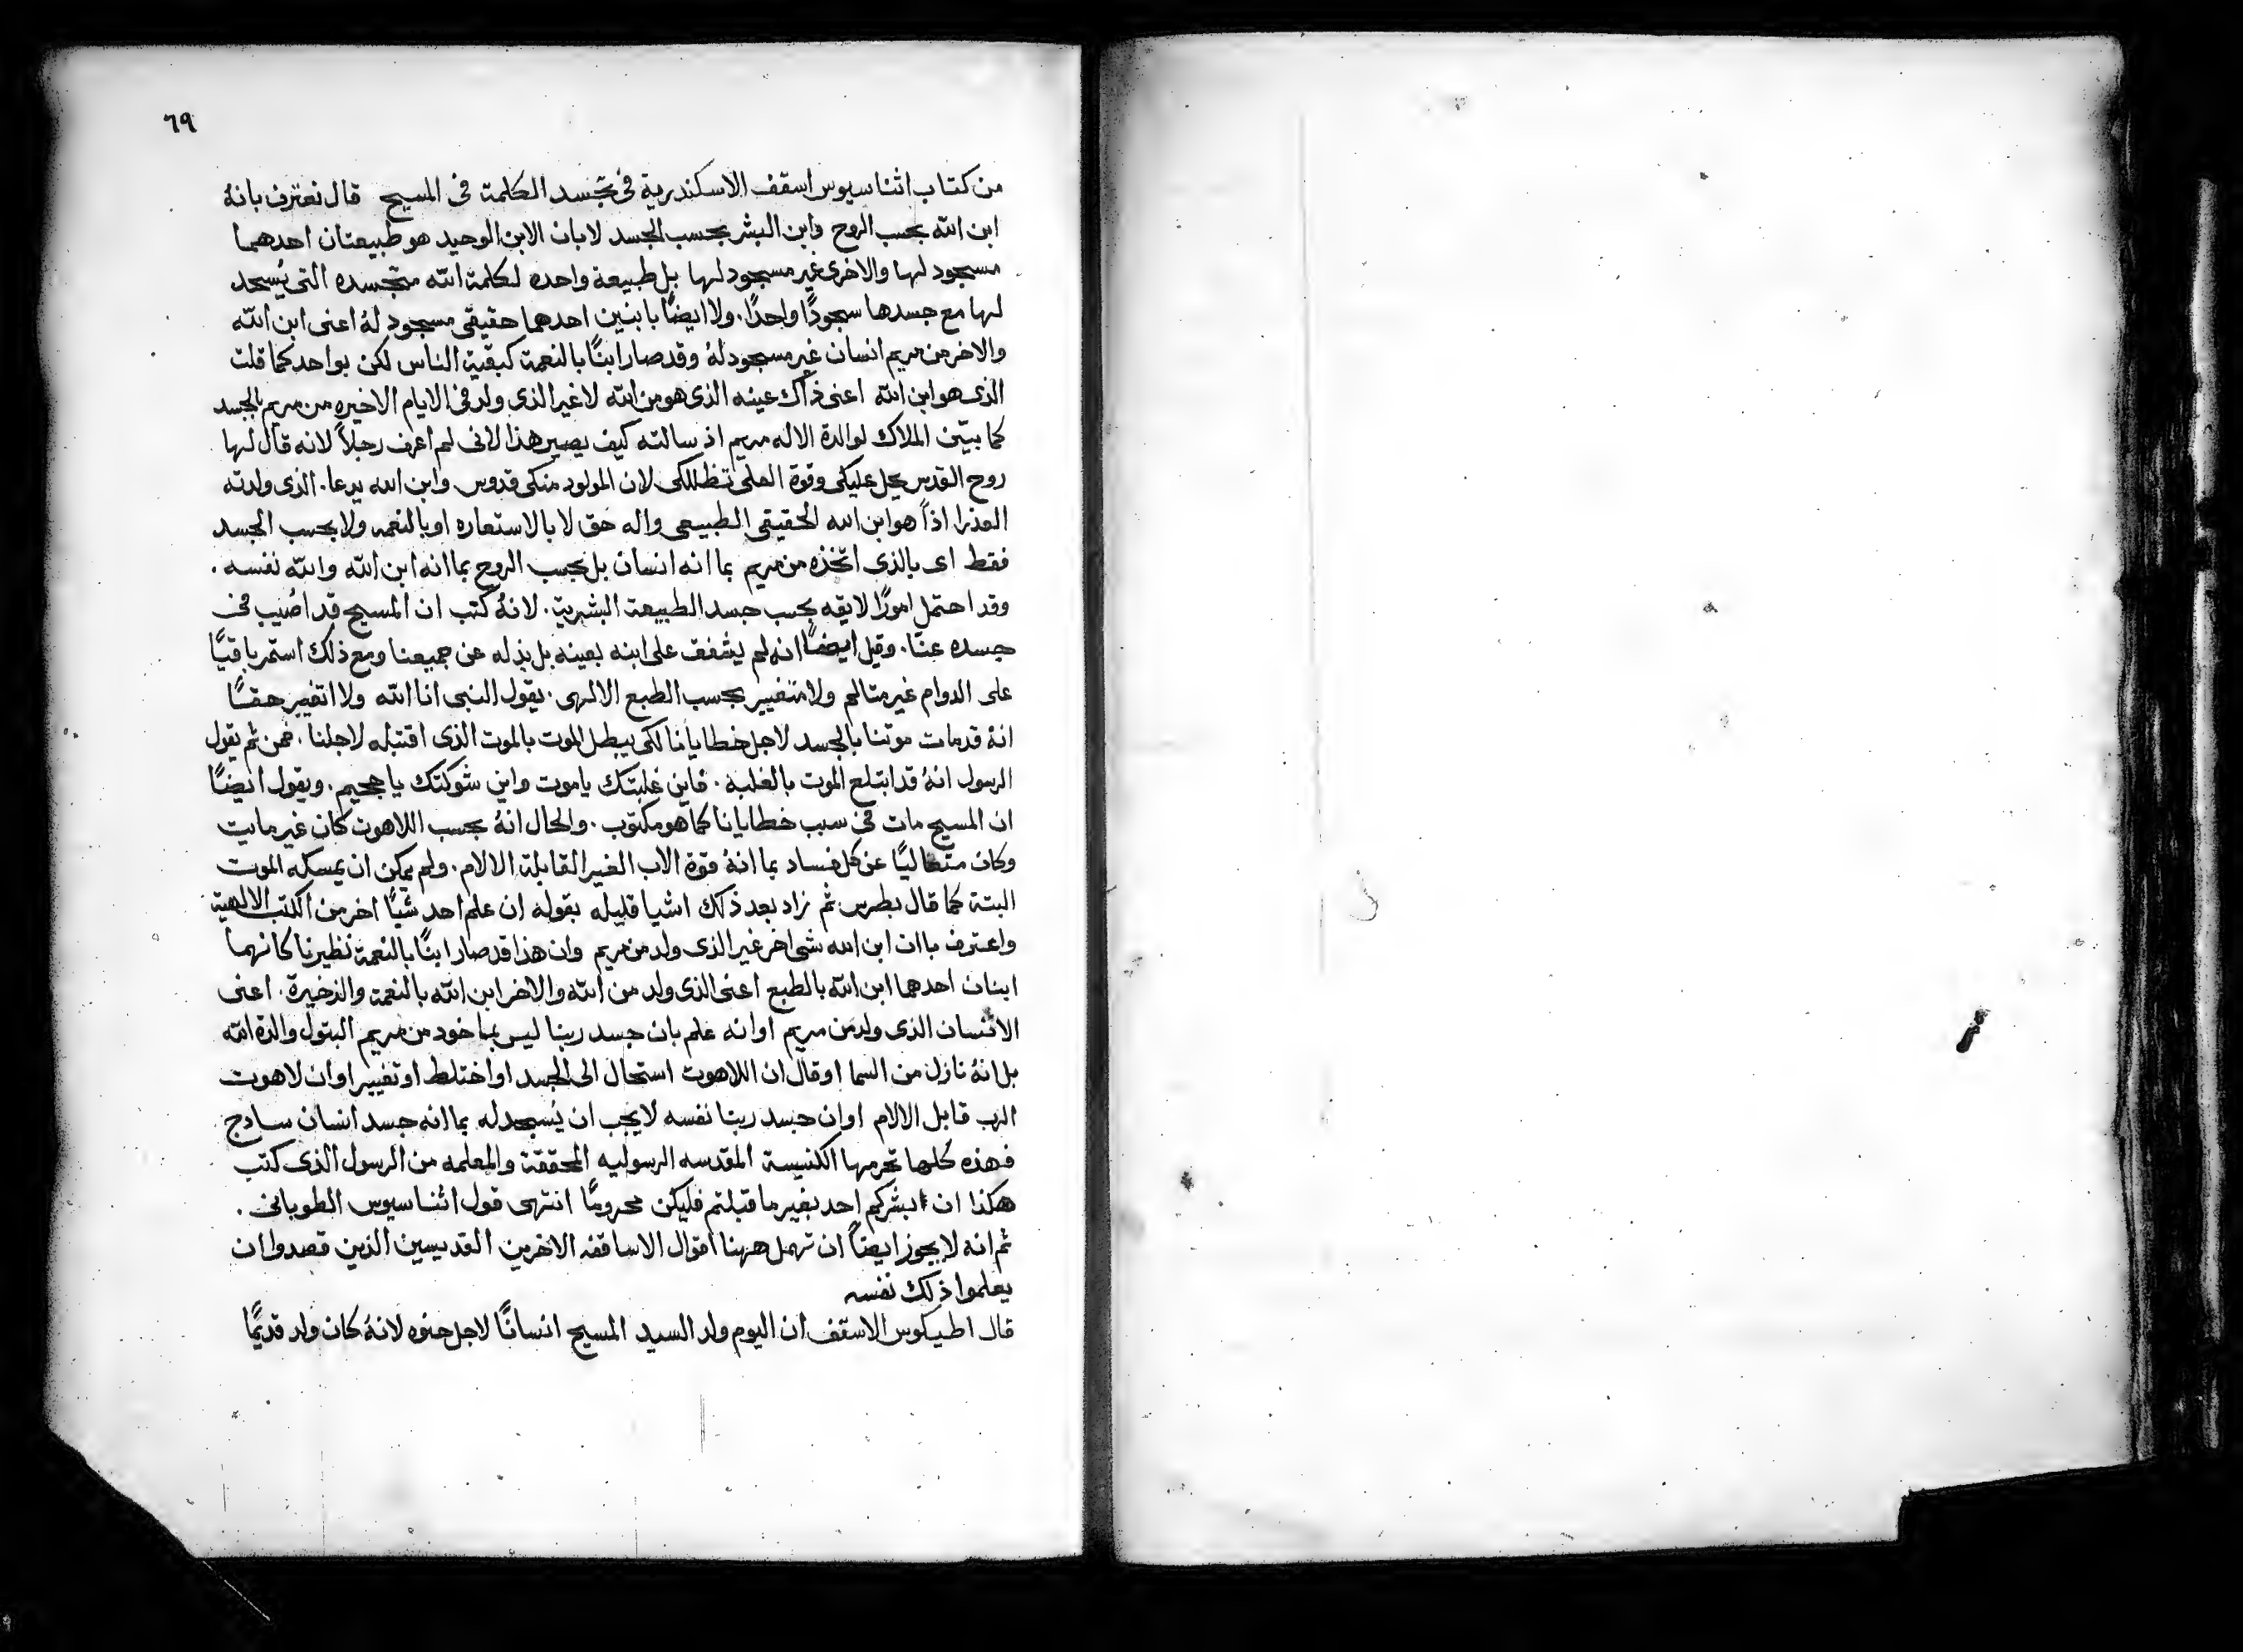 ٦٩
من كتاب اثناسيوس اسقف الاسكندرية فى تجسد الكلمة فى المسيح قال نعترف بانهُ
ابن الله بحسب الروح وابن البشر بحسب الجسد لا بان الابن الوحيد هو طبيعتان احدهما
مسجود لها والاخرى غير مسجود لها بل طبيعة واحده لكلمة الله متجسده التى يُسجد
لها مع جسدها سجودًا واحدًا. ولا ايضًا بابنين احدهما حقيقى مسجود لهُ اعنى ابن الله
والاخر من مريم انسان غير مسجود لهُ وقد صار ابنًا بالنعمة كبقية الناس لكن بواحد كما قلت
الذى هو ابن الله اعنى ذاك عينه الذى هو من الله لا غير الذى ولد فى الايام الاخيره من مريم بالجسد
كما بيّن الملاك لوالدة الاله مريم اذ سالته كيف يصير هذا لانى لم اعرف رجلاً لانه قال لها
روح القدس يحل عليكى وقوة العلى تظللكى لان المولود منكى قدوس وابن الله يدعا. الذى ولدته
العذرا اذاً هو ابن الله الحقيقى الطبيعى واله حق لا بالاستعاره او بالنعمه ولا بحسب الجسد
فقط اى بالذى اتخذه من مريم بما انه انسان بل بحسب الروح بما انه ابن الله والله نفسه.
وقد احتمل امورًا لايقه بحسب جسد الطبيعة البشرية. لانهُ كتب ان المسيح قد اصُيب فى
جسده عنّا. وقيل ايضًا انه لم يشفق على ابنه بعينه بل بذله عن جميعنا ومع ذلك استمر باقيًا
على الدوام غير متالم ولا متغيير بحسب الطبع الالهى. يقول النبى انا الله ولا اتغيير حقًا
انهُ قد مات موتنا بالجسد لاجل خطايانا لكى يبطل الموت بالموت الذى اقتبله لاجلنا. فمن ثم يقول
الرسول انهُ قد ابتلع الموت بالغلبه. فاين غلبتك ياموت واين شوكتك يا جحيم. ويقول ايضًا
ان المسيح مات فى سبب خطايانا كما هو مكتوب. والحال انهُ بحسب اللاهوت كان غير مايت
وكان متعاليًا عن كل فساد بما انهُ قوة الاب الغير القابلة الالام. ولم يمكن ان يمسكه الموت
البتة كما قال بطرس ثم زاد بعد ذلك اشيا قليله بقوله ان علم احد شيًا اخر من الكتب الالهية
واعترف باان ابن الله شى اخر غير الذى ولد من مريم وان هذا قد صار ابنًا بالنعمة نظيرنا كانهما
ابنان احدهما ابن الله بالطبع اعنى الذى ولد من الله والاخر ابن الله بالنعمة والذخيرة. اعنى
الانسان الذى ولد من مريم او انه علم بان جسد ربنا ليس بماخود من مريم البتول والدة الله
بل انهُ نازل من السما او قال ان اللاهوت استحال الى الجسد او اختلط او تغيير او ان لاهوت
الرب قابل الالام او ان جسد ربنا نفسه لا يجب ان يُسجد له بما انه جسد انسان سادج
فهذه كلها تحرمها الكنيسة المقدسه الرسوليه المحققة والمعلمه من الرسول الذى كتب
هكذا ان ابشركم احد بغير ما قبلتم فليكن محرومًا انتهى قول اثناسيوس الطوبانى.
ثم انه لا يجوز ايضاً ان تهمل ههنا اقوال الاساقفه الاخرين القديسين الذين قصدوا ان
يعلموا ذلك نفسه
قال اطيكوس الاسقف ان اليوم ولد السيد المسيح انسانًا لاجل حنوه لانهُ كان ولد قديمًا